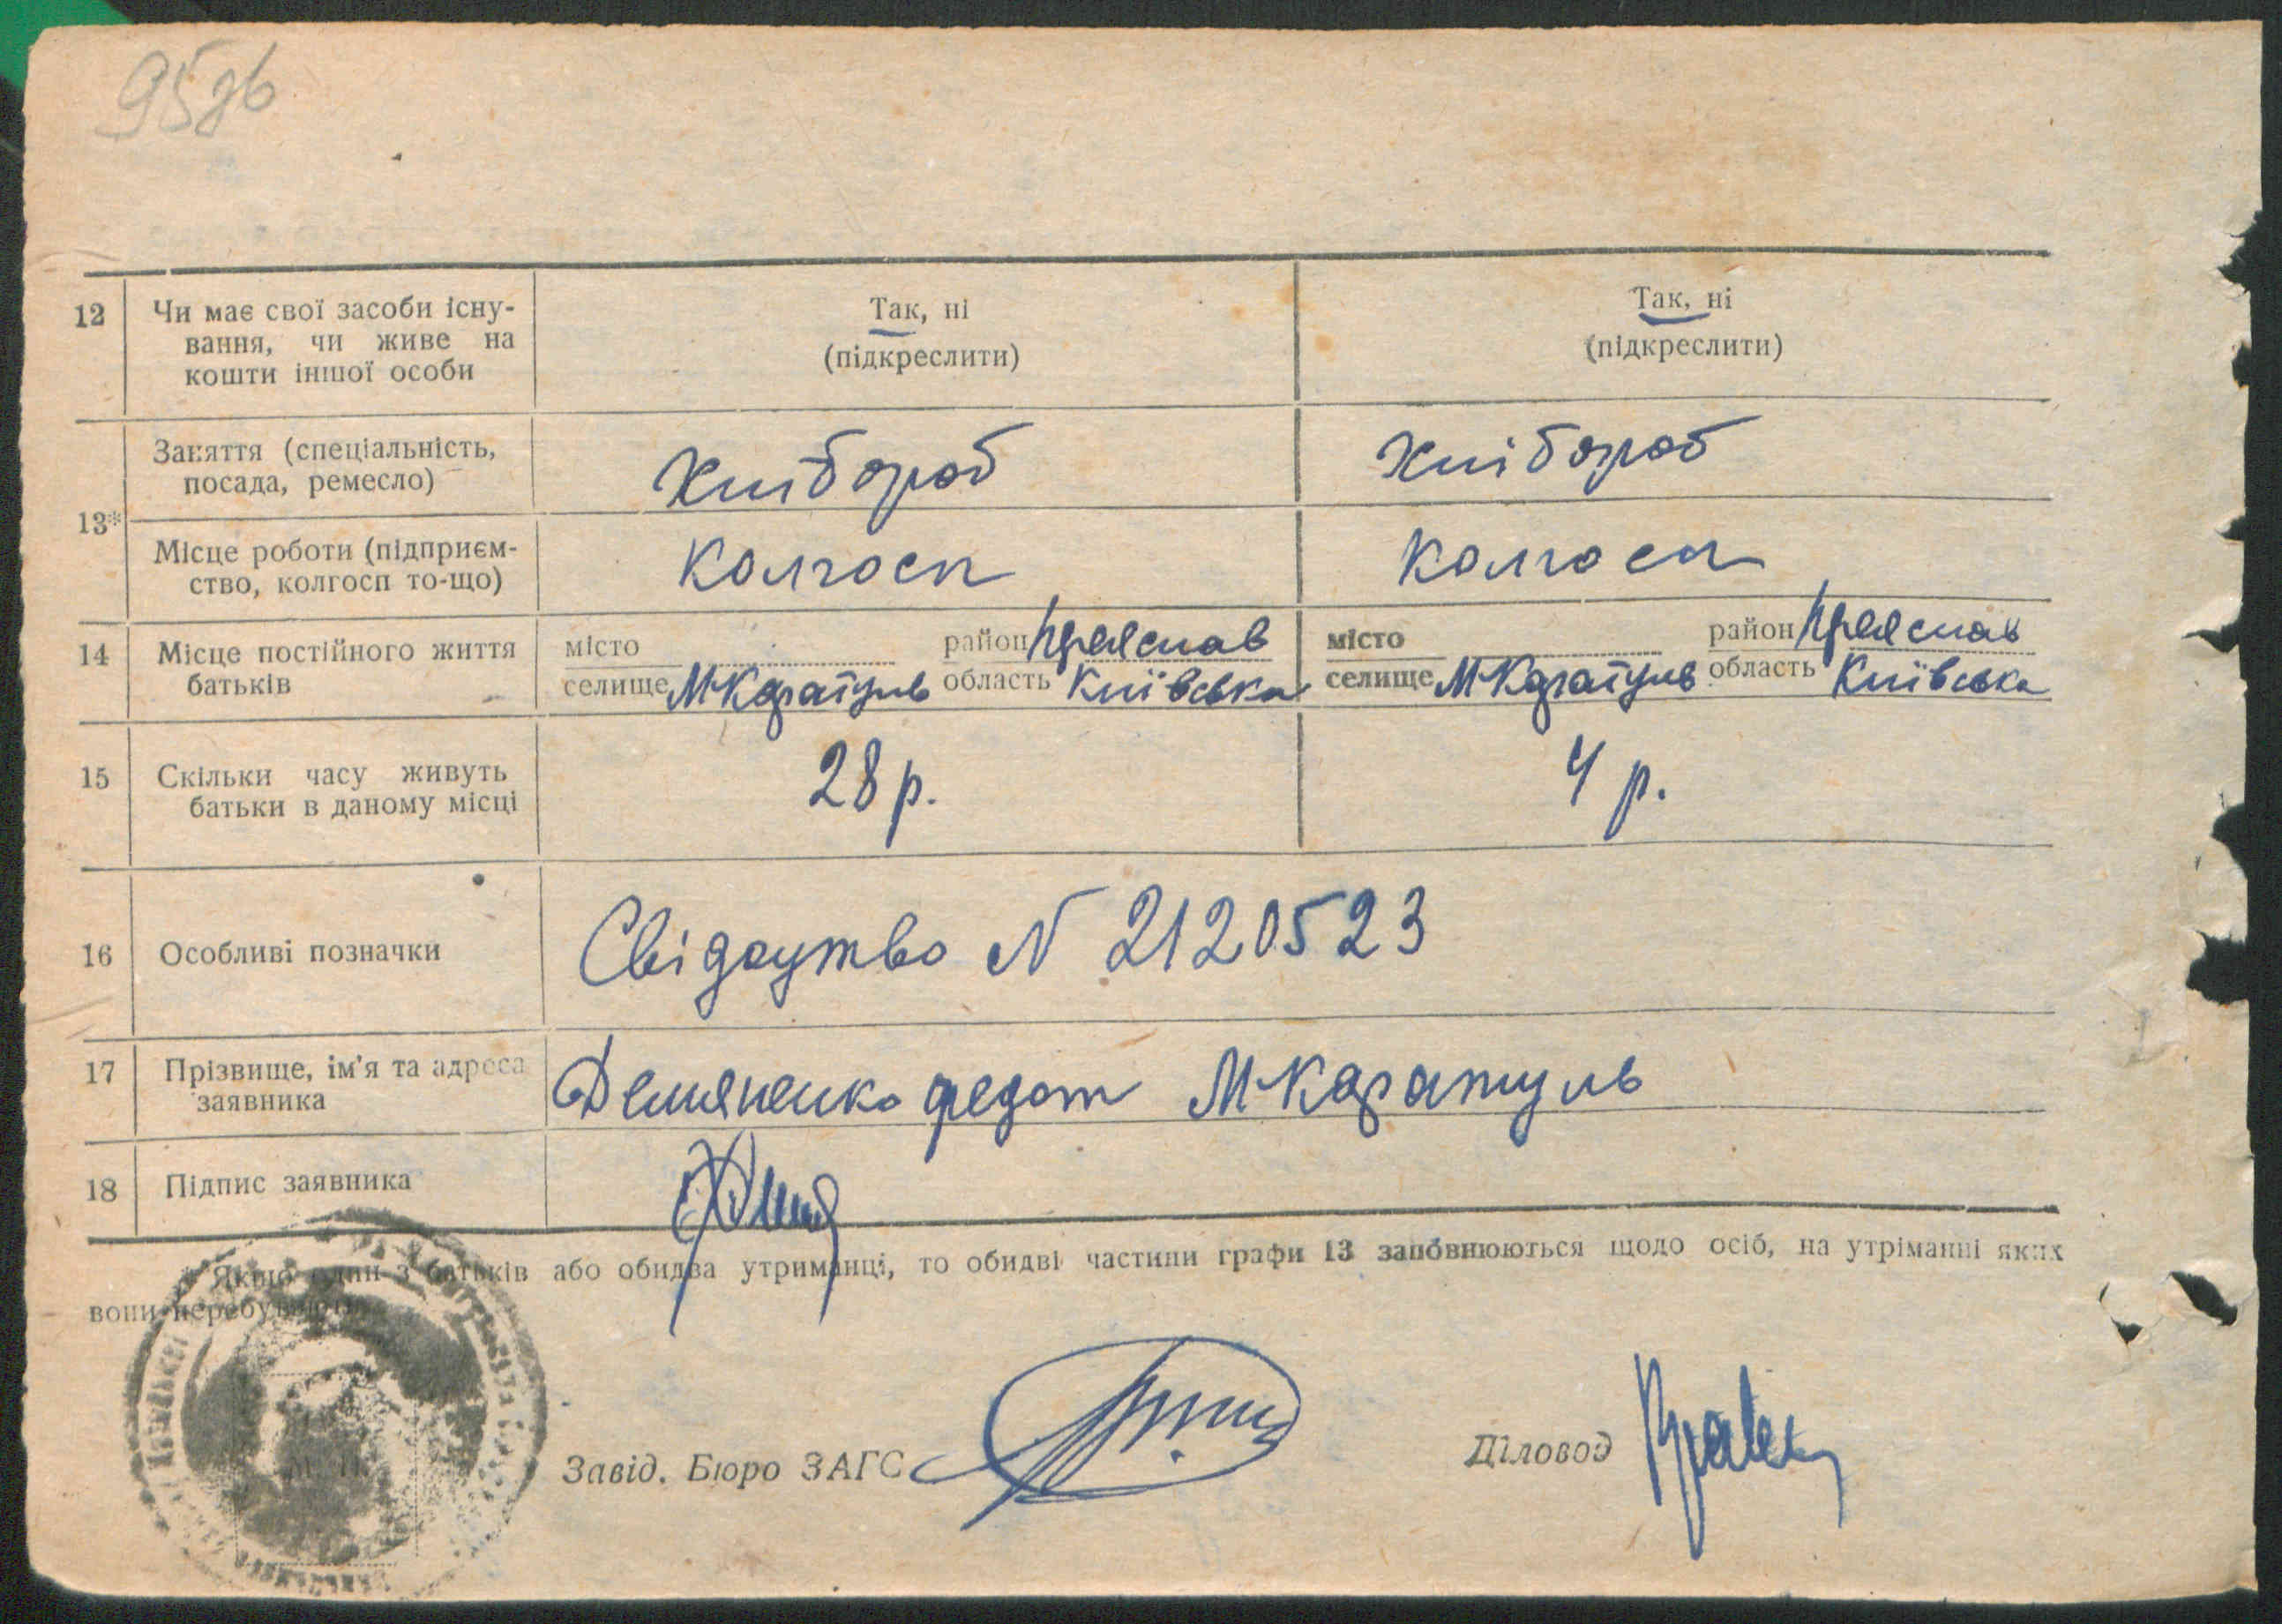 95зв
12 Чи має свої засоби існу-
вання, чи живе на
кошти іншої особи
Так, ні
(підкреслити)
Так, ні
(підкреслити)
13*
Заняття (спеціальність,
посада, ремесло)
Хлібороб
Хлібороб
Місце роботи (підприєм-
ство, колгосп то-що)
Колгосп
Колгосп
14 Місце постійного життя
батьків
місто район Пряслав
селище МКаратуль область Київська
місто район Пряслав
селище МКаратуль область Київська
15 Скільки часу живуть
батьки в даному місці
28 р.
4 р.
16 Особливі позначки
Свідоутво N 2120523
17 Прізвище, ім'я та адреса
заявника
Демяненко Федот МКаратуль
18 Підпис заявника
* Якщо один з батьків або обидва утриманці, то обидві частини графи 13 заповнюються щодо осіб, на утріманні яких
вони перебувають.
Завід. Бюро ЗАГС
Діловод